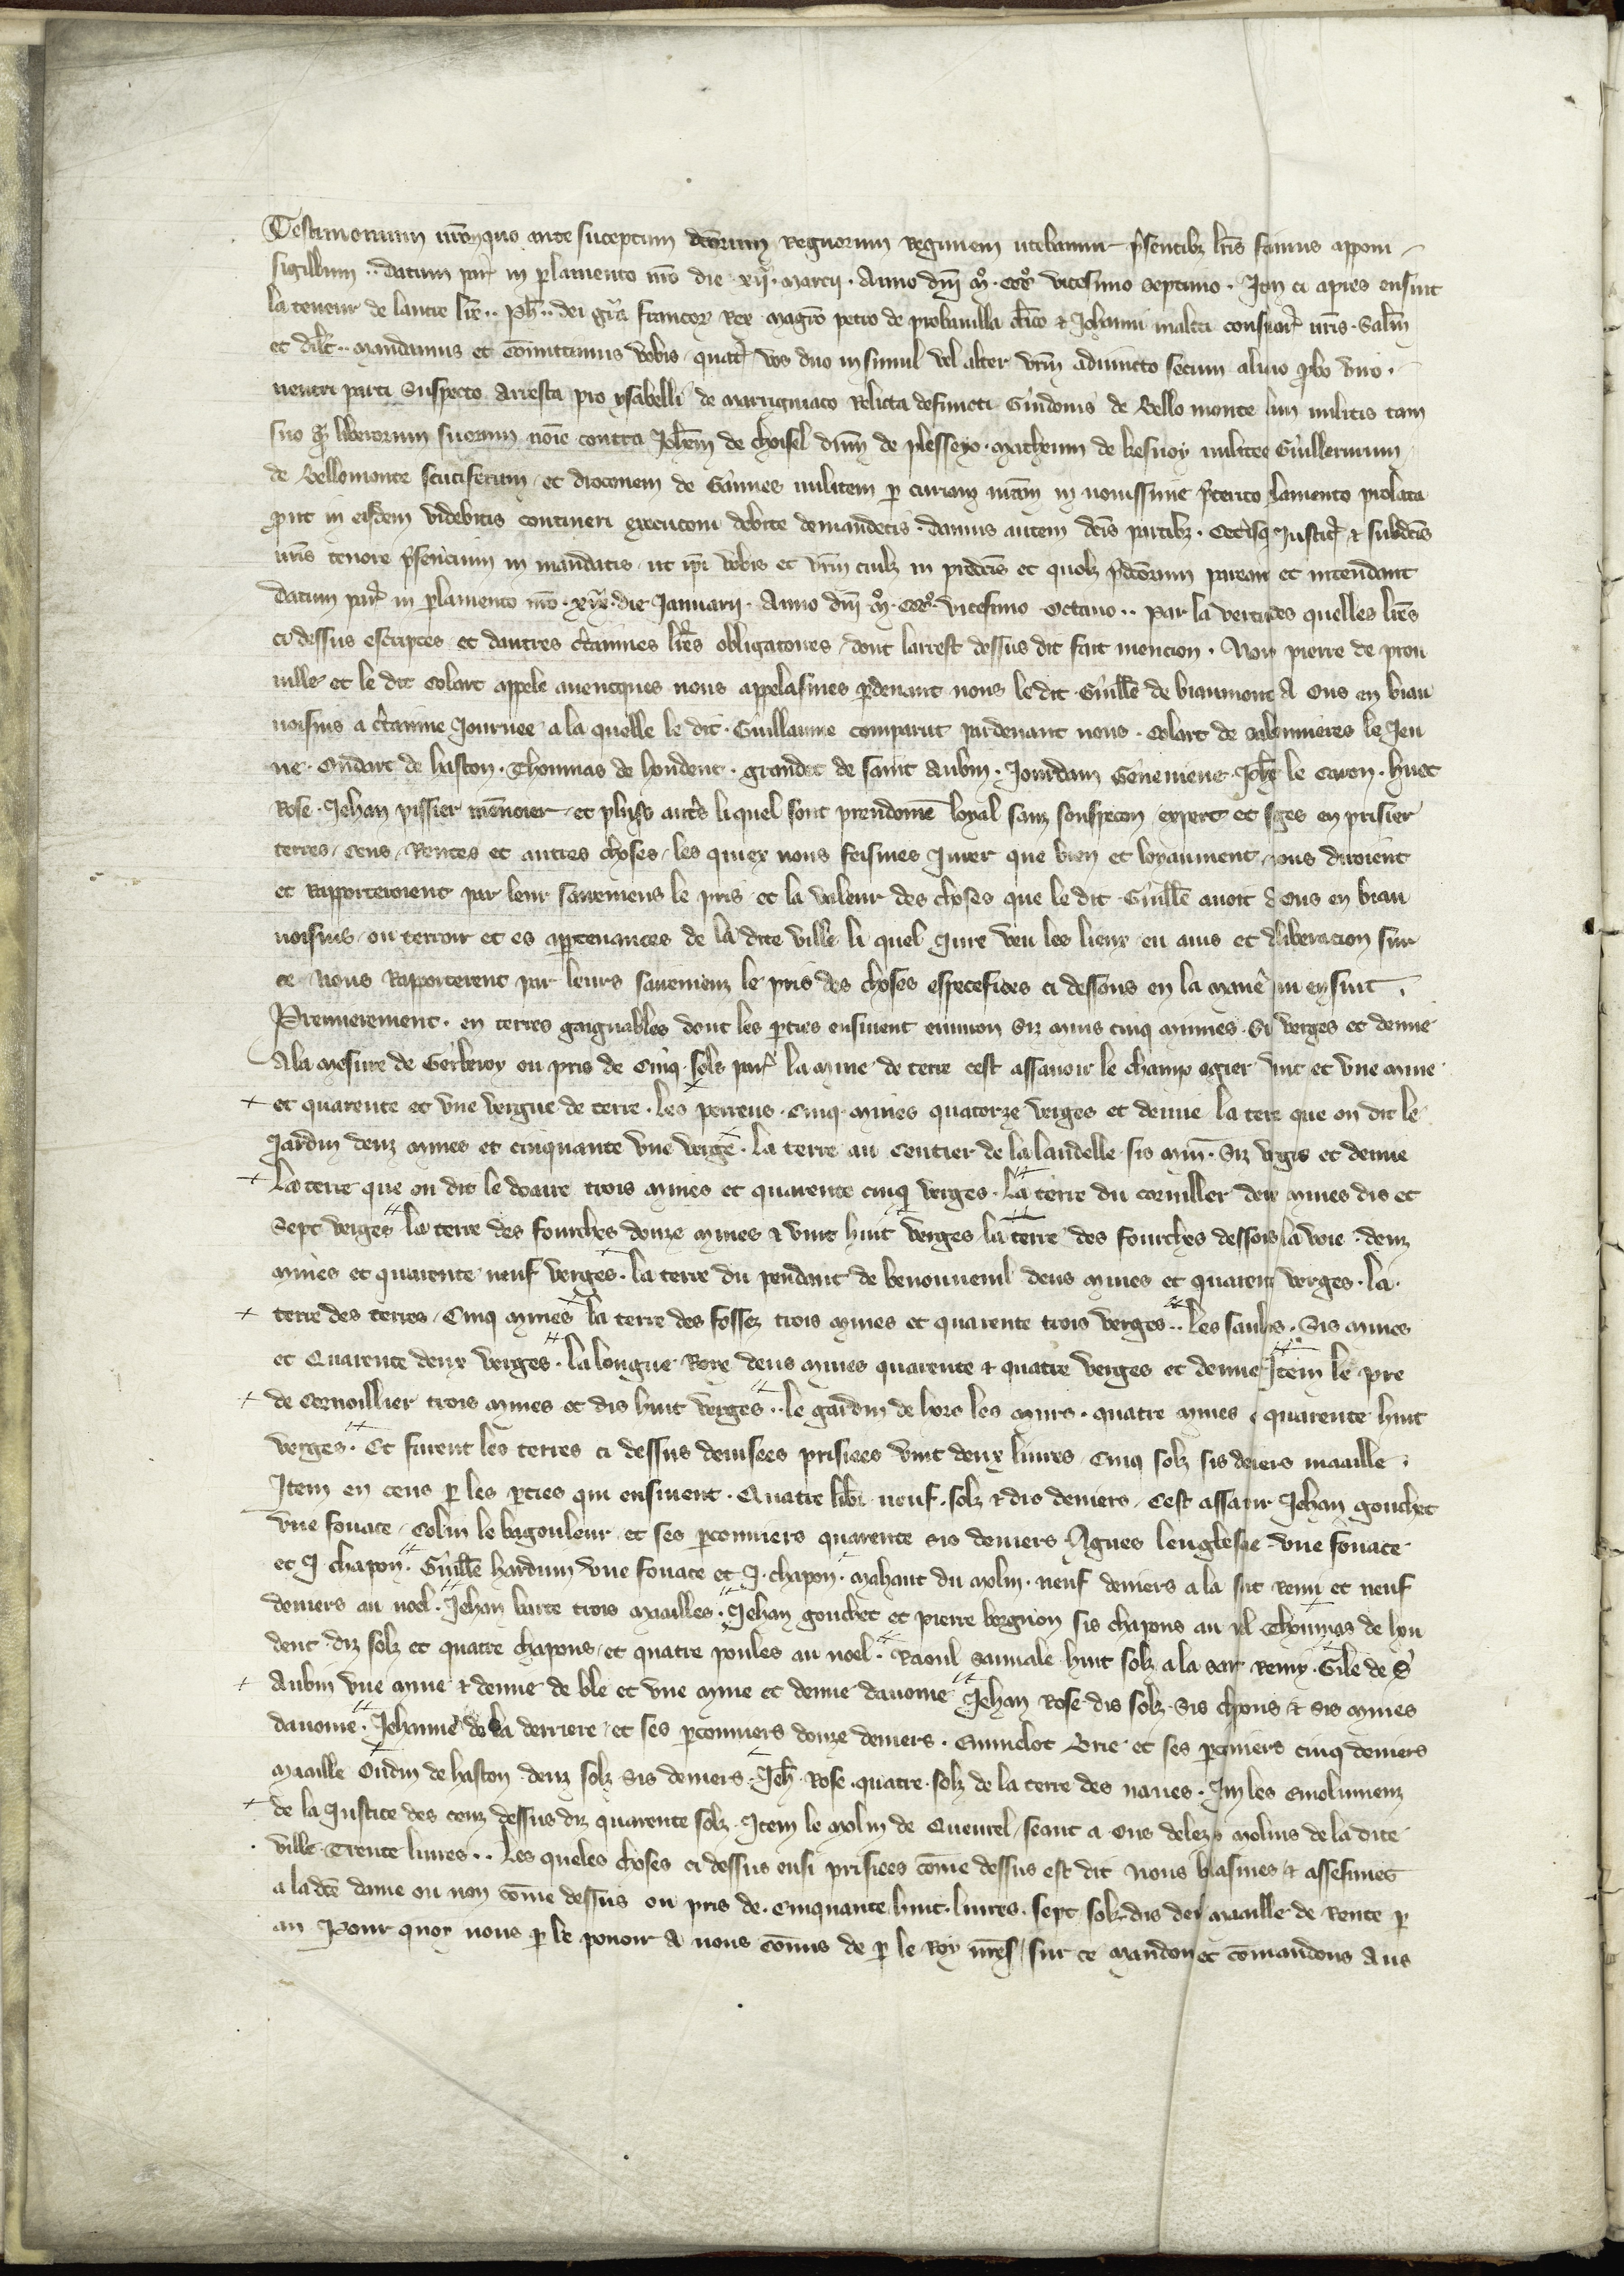 Testimonium nrm quo ante suceptum dcorum Regnorum Regimen utebamur psentibz lris fecimus apponi
sigillum .. datum par in plamento nro die xij marcij . Anno dni mo . ccco vicesimo septimo . Item ci apres ensuit
la teneur de lautre lre .. Ph .. dei gra francor Rex magro petro de probavilla clico et Johanni consiliar nris . Salm
et dilc .. mandamus et comittimus vobis quatr vos duo insimul vel alter vrm adiuncto secum aliquo pbo viro .
neutri parti Suspecto arresta pro ysabelli de marrigniaco Relicta defuncti Guidonis de Bello monte militis tam
suo qm liberorum suorum noie contra Johem de choisel dnm de plesseyo . matheum de kesnoy milites Guillermum
de Bellomonte scutiferum et droconem de Gannes militem p curiam nram in novissime pterito lamento prolata
put in eisdem videbitis contineri executoni debite demandetis . damus autem dcis partibz . ceterisqz Justic et subdcis
nris tenore psencium in mandatis ut ipi vobis et vrm cuilz in predcis et quolz pdcorum pareant et intendant
datum par in plamento nro . xix . die Januarij . Anno dni mo . ccco . vicesimo octavo .. Par la vertu des quelles lres
ci dessus escriptes et dautres ctaines lres obligatoires dont larrest dessus dit fait mencion . Nous pierre de prou
ville et le dit Colart appele avencques nous appelasmes pdevant nous le dit Guille de biaumont A Ons en biau
voisins a ctaine Journee a la quelle le dit . Guillaume comparut pardevant nous . Colart de le Jeu
ne . Oudart de haston . Thoumas de hondent . grandet de saint Aubin . Jourdam . Jeh le Caron . huet
Rose . Jehan pissier et plusrs autrs li quel sont preudome loyal sanz souspecon expert et sges en prisier
terres Cens Rentes et autres choses les quiex nous feismes Jurer que bien et loyaument nous diroient
et Rapporteroient par leur seremens le pris et la valeur des choses que le dit Guille avoit a Ons en biau
voisins ou terroir et es apertenances de la dite ville li quel Jure veu les lieux eu avis et dliberacion sur
ce Nous Rapporterent par leurs seremenz le pris des choses especefices ci dessous en la manie qui ensuit .
Premierement . en terres gaignables dont les pties ensuient environ Siz muis cinq mines . Si verges et demie
A la mesure de Gerberoy ou pris de Cinq solz par la mine de terre cest assavoir le champ ogier vint et une mine
et quarente et une vergue de terre . les perreus . Cinq mines quatorze verges et demie la terre que on dit le
Jardin deuz mines et cinquante une verge . la terre au Sentier de la landelle sis min . Siz vrges et demie
La terre que on dit le doaire trois mines et quarente cinq verges . La terre du cornillier deux mines dis et
Sept verges la terre des fourches douze mines et vint huit verges la terre des fourches dessous la voie . deuz
mines et quarente neuf verges . la terre du pendant de benonvenil deus mines et quarente verges . la
terre des terres Cinq mines la terre des fossez trois mines et quarente trois verges .. Les saulz . Sis mines
et Quarente deux verges . la longue Roye deus mines quarente et quatre verges et demie Item le pre
de Cornoillier trois mines et dis huit verges .. le gardin de hors les murs . quatre mines quarente huit
verges . Et furent les terres ci dessus devisees prisiees vint deux livres Cinq solz sis deiers maaille .
Item en cens p les pties qui ensuient . Quatre libr neuf solz et dis deniers . Cest assavr Jehan gouchet
une fouace Colin le bagouleur et ses pconniers quarente sis deniers . Agnes lenglesche une fouace
et J chapon . Guille hardum une fouace et J . chapon . Mahaut du molin . neuf deniers a la sint Remi et neuf
deniers au noel . Jehan barte trois maailles . Jehan gouchet et pierre borgnon sis chapons au nl Thoumas de hon
dent diz solz et quatre chapons et quatre poules au noel . Raoul sauvale huit solz a la Remy . Gile de St
Aubin une mine et demie de ble et une mine et demie davoine Jehan Rose dis solz . Sis chpons et sis mines
davoine . Jehanne de la derriere et ses pconniers douze deniers . Brie et ses pconniers cinq deniers
maaille Oudin de haston deuz solz sis deniers . Jeh Rose . quatre . solz de la terre des naves . Item les emolumenz
de la Justice des cenz dessus diz quarente solz . Item le molin de Queurel seant a Ons delez molins de la dite
ville Trente livres .. Les queles choses ci dessus ensi prisiees come dessus est dit nous baillasmes et assesimes
a la dce dame ou non come dessus ou pris de . Cinquante huit livres . sept solz dis den maaille de Rente p
an Pour quoy nous p le povoir A nous comis de p le Roy nres sur ce mandons et comandons Aus